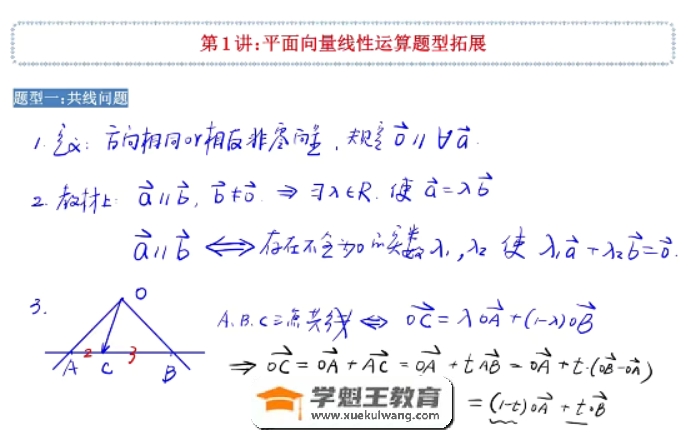 第1讲:平面向量线性运算题型拓展
题型一:共线问题
1. 定义: 方向相同or相反非零向量, 规定 0⃗ // ∀a⃗.
2. 教材上: a⃗ // b⃗, b⃗ ≠ 0⃗ ⇒ ∃λ∈R. 使 a⃗ = λb⃗
a⃗ // b⃗ ⟺ 存在不全为0的实数 λ₁, λ₂ 使 λ₁a⃗ + λ₂b⃗ = 0⃗.
3.
O
A 2 C 3 B
A、B、C三点共线 ⇔ OC⃗ = λOA⃗ + (1-λ)OB⃗
⇒ OC⃗ = OA⃗ + AC⃗ = OA⃗ + tAB⃗ = OA⃗ + t·(OB⃗ - OA⃗)
= (1-t)OA⃗ + tOB⃗
学魁王教育
www.xuekulwang.com